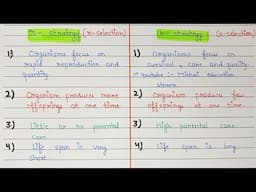 r- strategy (r-selection)
1) Organisms focus on
rapid reproduction and
quantity
2) Organism produces more
offsprings at one time.
3) Little or no parental
care
4) Life span is very
short
k- strategy (k-selection)
1) Organisms focus on
survival, care and quality
Youtube :- Mishal education
stream
2) Organism produces few
offsprings at one time.
3) High parental care
4) Life span is long